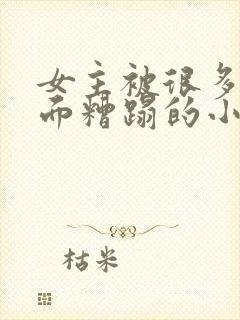 女主被很多
而糟蹋的小
枯米